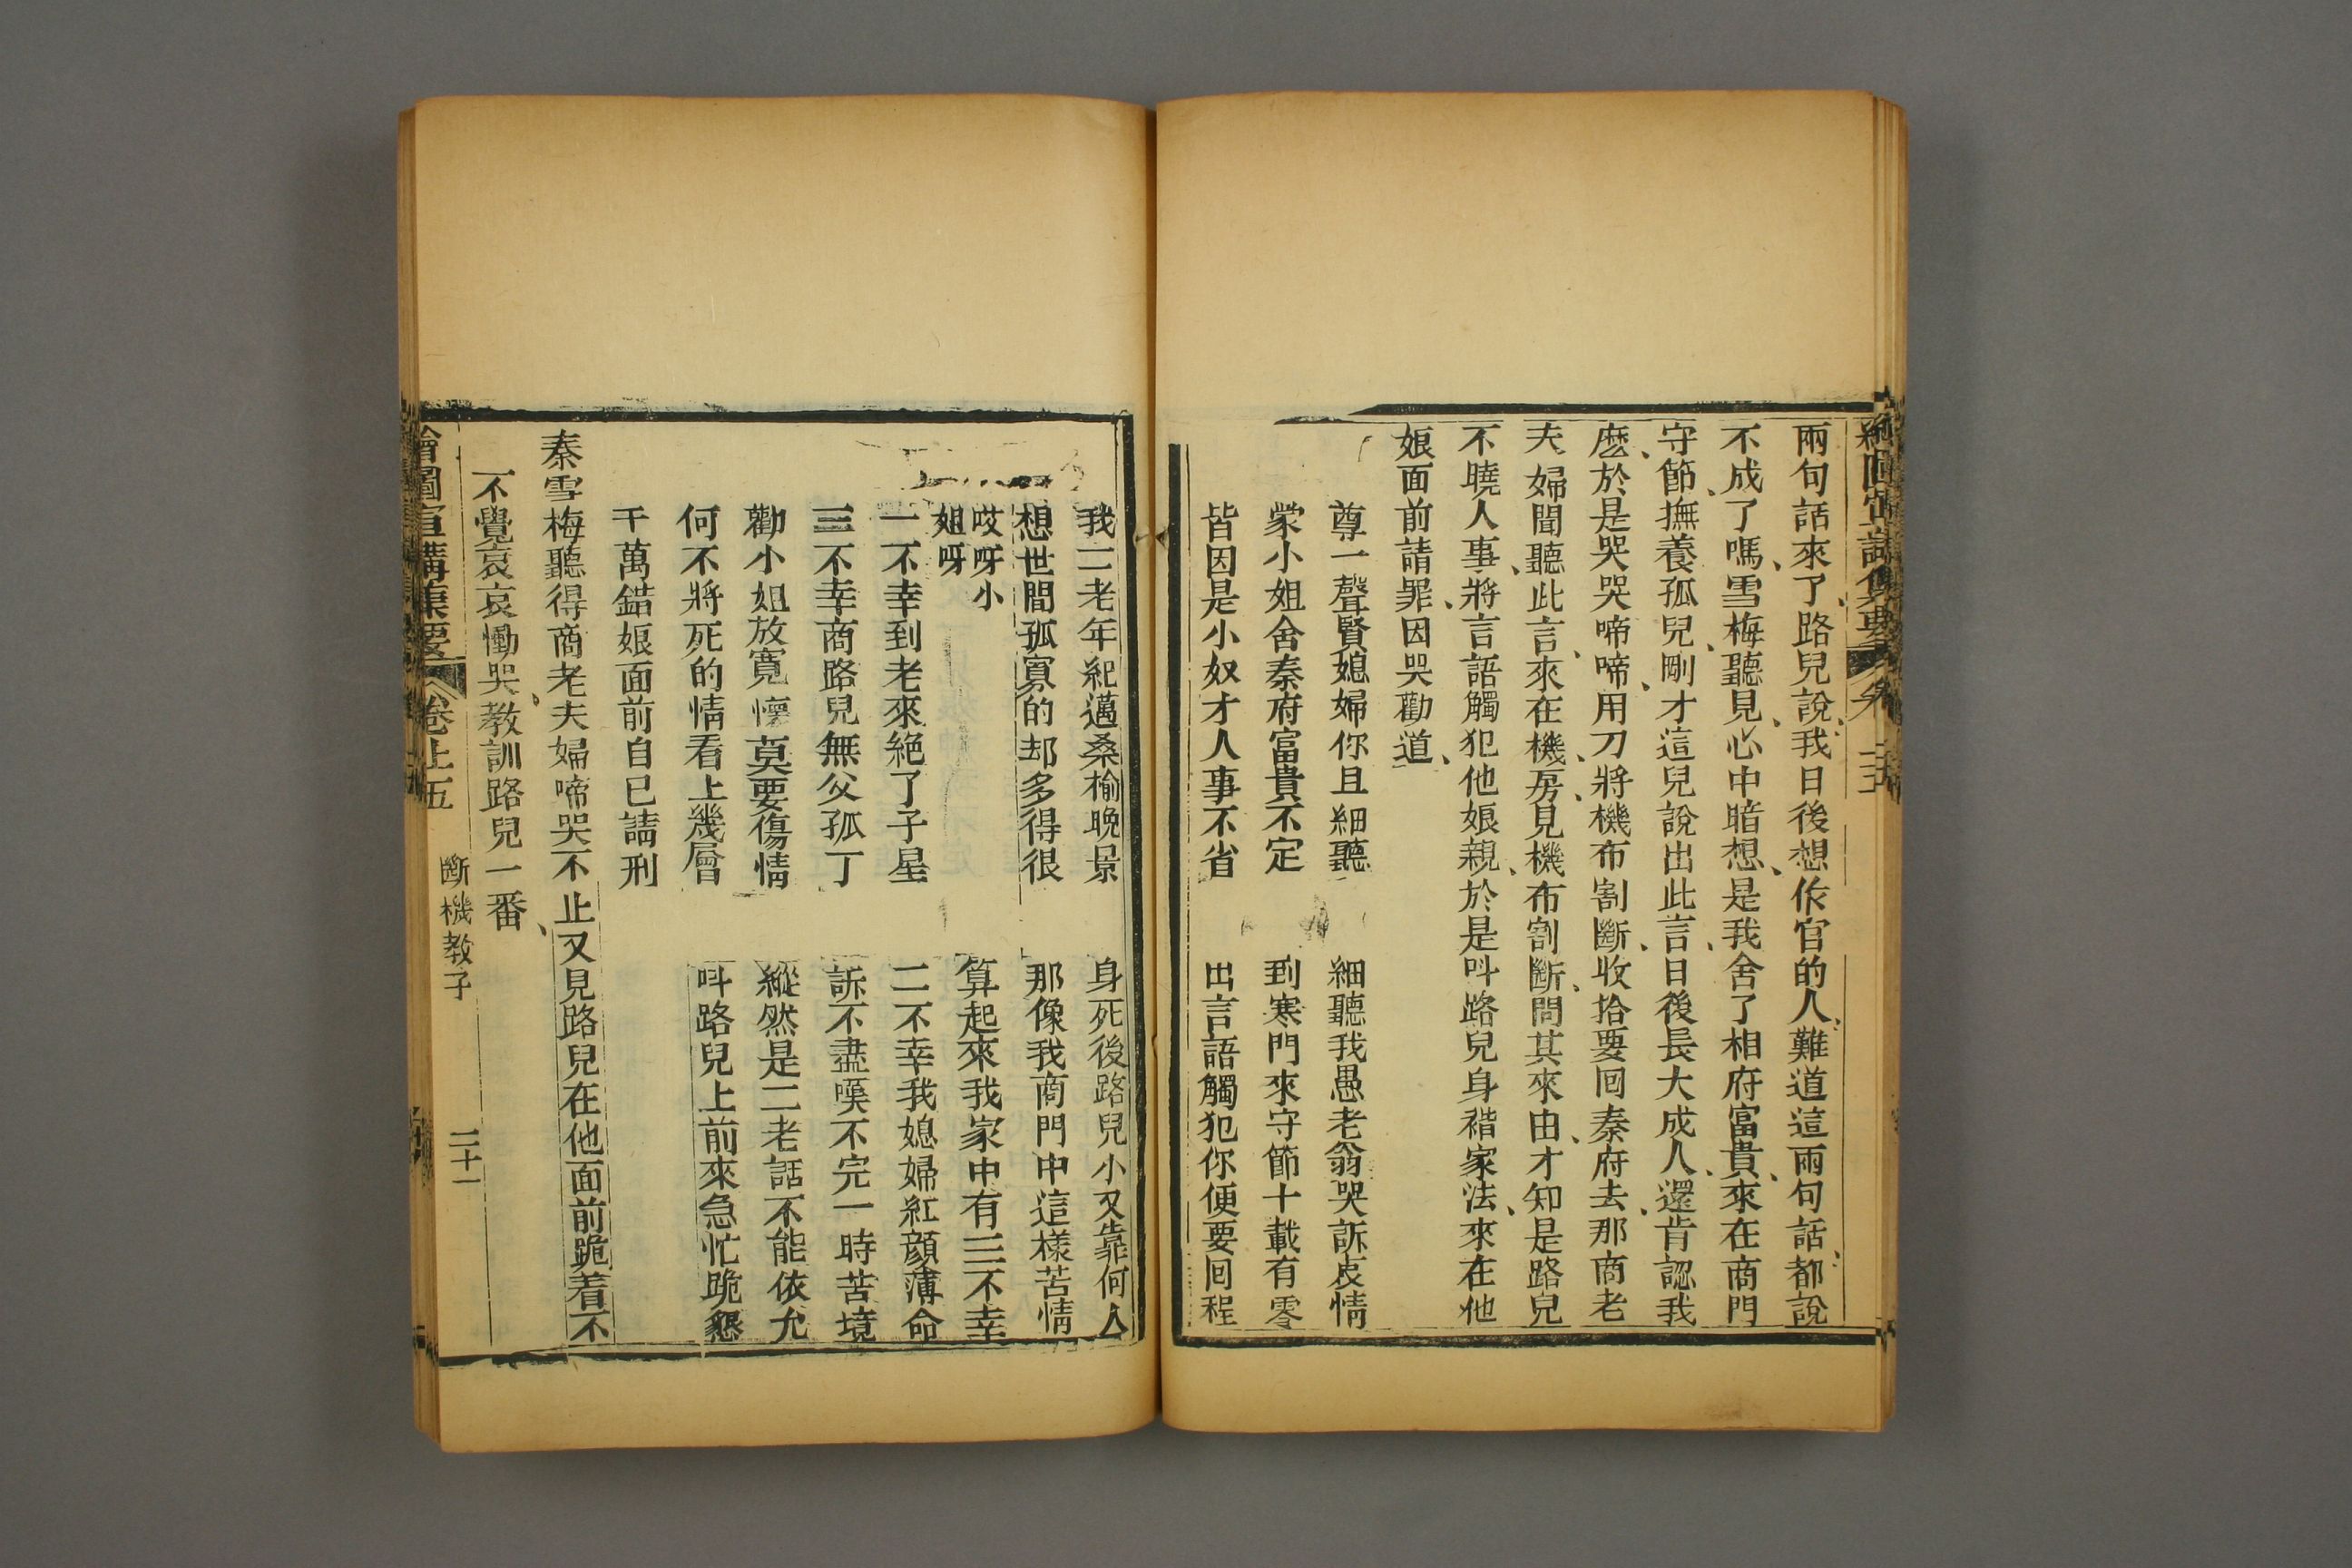 兩句話來了、路兒說、我日後想作官的人、難道這兩句話、都說
不成了嗎、雪梅聽見、心中暗想、是我舍了相府富貴、來在商門
守節、撫養孤兒、剛才這兒說出此言、日後長大成人、還肯認我
麽、於是哭哭啼啼、用刀將機布割斷、收拾要回秦府去、那商老
夫婦聞聽此言、來在機房、見機布割斷、問其來由、才知是路兒
不曉人事、將言語觸犯他娘親、於是呌路兒身褙家法、來在他
娘面前請罪、因哭勸道、
尊一聲賢媳婦你且細聽 細聽我愚老翁哭訴衷情
蒙小姐舍秦府富貴不定 到寒門來守節十載有零
皆因是小奴才人事不省 出言語觸犯你便要回程
我二老年紀邁桑榆晚景 身死後路兒小又靠何人
想世間孤寡的却多得很 那像我商門中這樣苦情
哎呀小
姐呀 算起來我家中有三不幸
一不幸到老來絕了子星 二不幸我媳婦紅顔薄命
三不幸商路兒無父孤丁 訴不盡嘆不完一時苦境
勸小姐放寛懷莫要傷情 縱然是二老話不能依允
何不將死的情看上幾層 呌路兒上前來急忙跪懇
千萬錯娘面前自已請刑
秦雪梅聽得商老夫婦啼哭不止又見路兒在他面前跪着不
不覺哀哀慟哭、教訓路兒一番、
繪圖宣講集要 卷上五 斷機教子 二十一